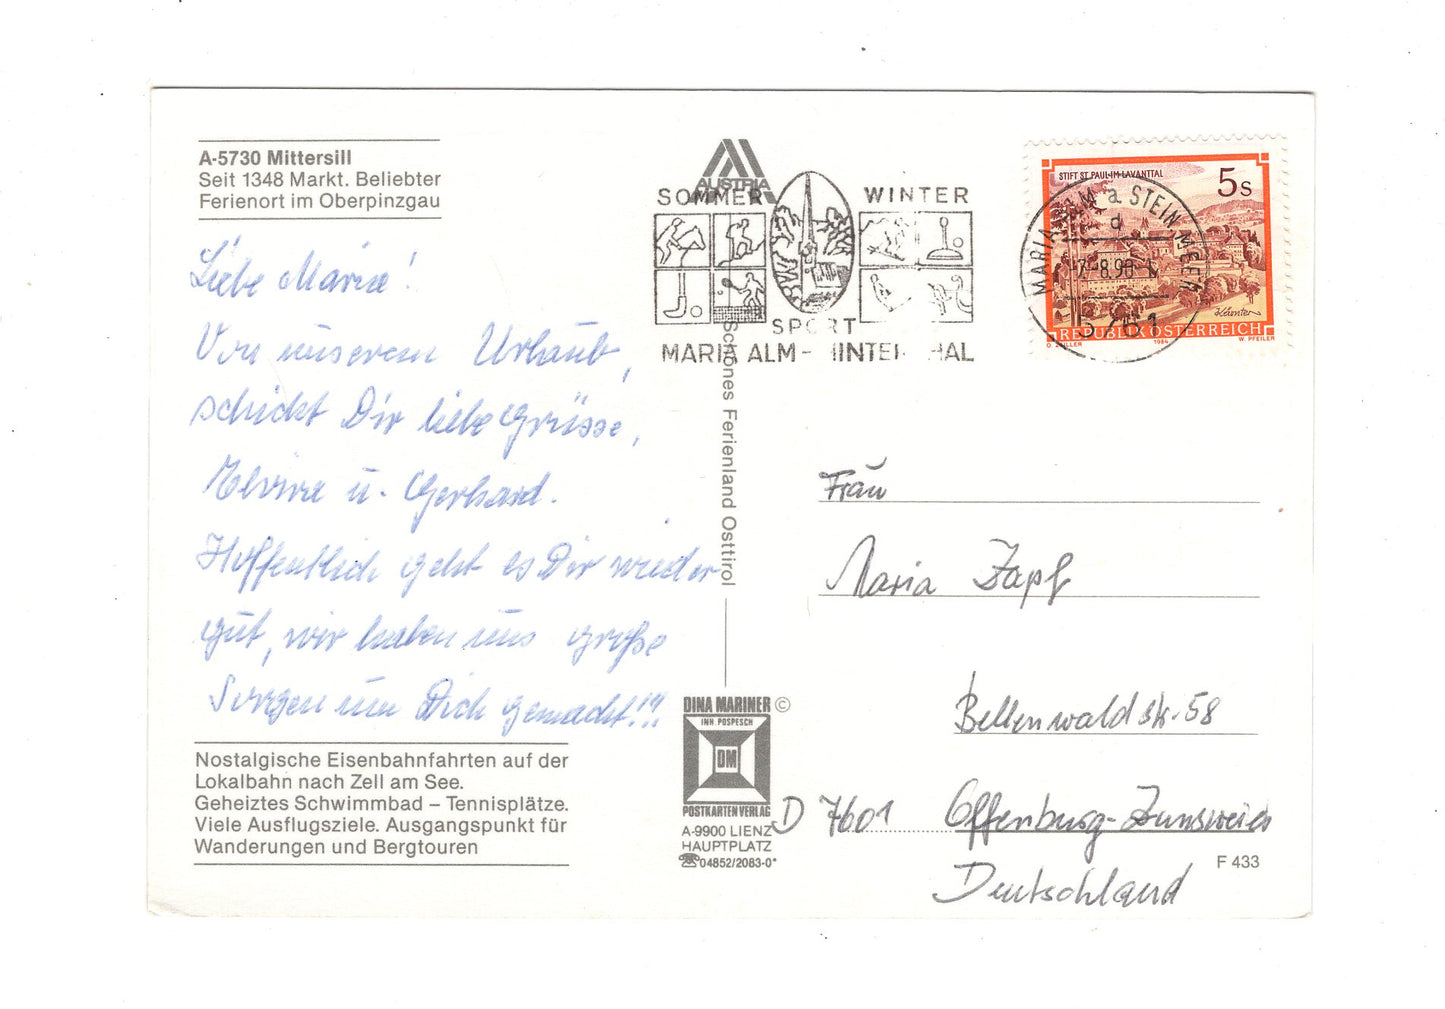 A-5730 Mittersill
Seit 1348 Markt. Beliebter
Ferienort im Oberpinzgau
Liebe Maria!
Von unserem Urlaub,
schickt Dir liebe Grüsse,
Elvira u. Gerhard.
Hoffentlich geht es Dir wieder
gut, wir haben uns große
Sorgen um Dich gemacht!!!
Nostalgische Eisenbahnfahrten auf der
Lokalbahn nach Zell am See.
Geheiztes Schwimmbad – Tennisplätze.
Viele Ausflugsziele. Ausgangspunkt für
Wanderungen und Bergtouren
AUSTRIA
SOMMER WINTER
SPORT
MARIA ALM-
Schönes Ferienland Osttirol
DINA MARINER ©
INH POSPESCH
DM
POSTKARTENVERLAG
A-9900 LIENZ
HAUPTPLATZ
☎ 04852/2083-0*
STIFT ST PAUL IM LAVANTTAL
5 S
Kärnten
REPUBLIK ÖSTERREICH
1984 W. PFEILER
MARIA ALM a STEIN. MEER
d
8.90
5761
Frau
Maria Zapf
Bellenwaldstr. 58
D 7601 Offenburg-Zunsweier
Deutschland
F 433